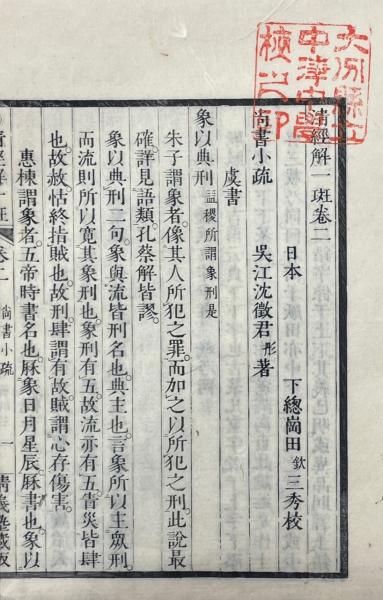 大分縣立
中津中學
校之印
清經解一斑卷二
日本 下總崗田欽三秀校
尚書小疏 吳江沈徵君彤著
虞書
象以典刑 益稷所謂象刑是
朱子謂象者。像其人所犯之罪。而加之以所犯之刑。此說最
確。詳見語類。孔蔡解皆謬。
象以典刑二句。象與流皆刑名也。典主也。言象所以主眾刑。
而流則所以寬其象刑也。象刑有五。故流亦有五。眚災皆肆
也。故赦。怙終指賊也。故刑。肆謂有故。賊謂心存傷害。
惠棟謂象者。五帝時書名也。厤象日月星辰。厤書也。象以
卷二 尚書小疏 一